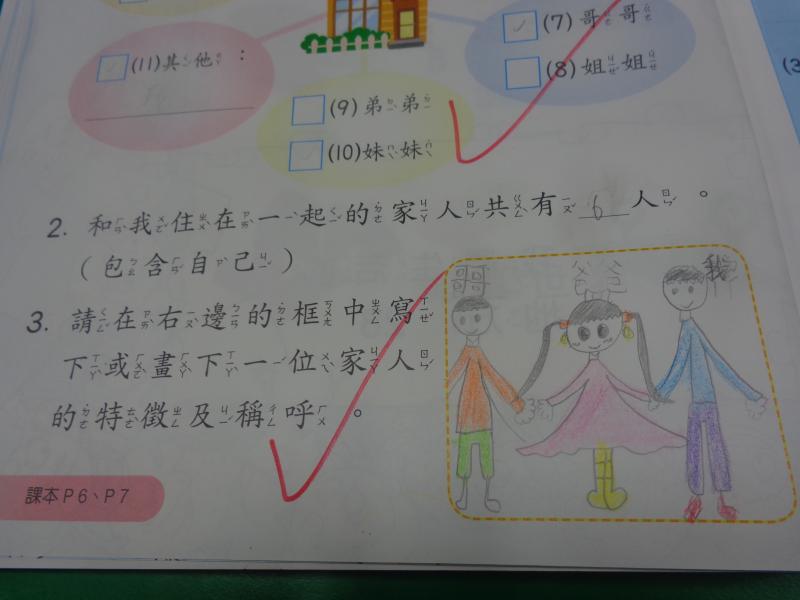 (7)哥哥
(11)其他：
(8)姐姐
(9)弟弟
(10)妹妹
2. 和我住在一起的家人共有 6 人。
(包含自己)
3. 請在右邊的框中寫
下或畫下一位家人
的特徵及稱呼。
哥哥 爸爸 我
課本P6、P7